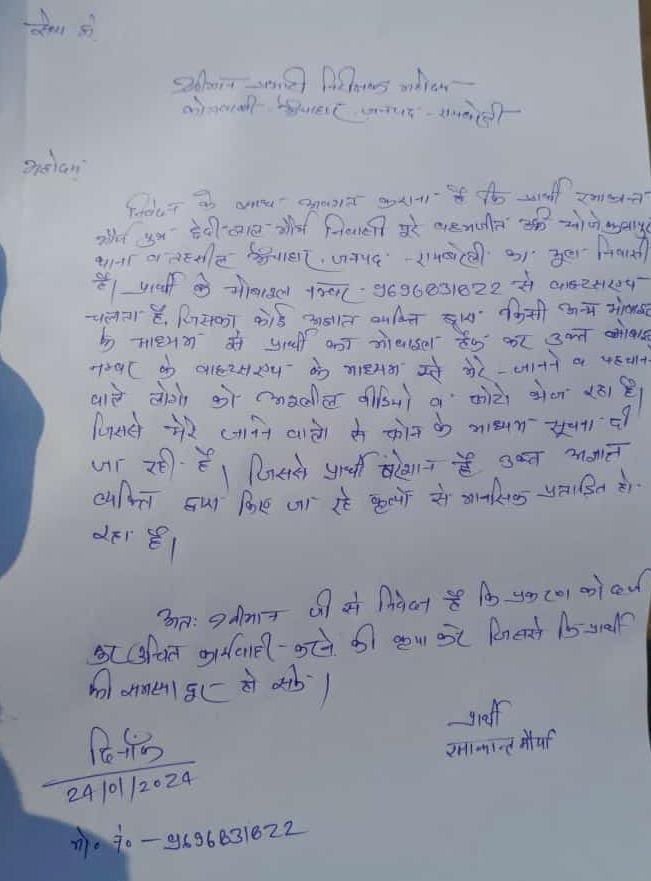 सेवा में,
श्रीमान प्रभारी निरीक्षक महोदय
कोतवाली - ऊँचाहार, जनपद - रायबरेली
महोदय,
निवेदन के साथ अवगत कराना है कि प्रार्थी रमाकान्त
मौर्य पुत्र देवी लाल मौर्य निवासी पूरे
थाना व तहसील ऊँचाहार, जनपद - रायबरेली का मूल निवासी
है। प्रार्थी के मोबाइल नम्बर - 9696831822 से वाहटसएप
चलता है, जिसका कोई अज्ञात व्यक्ति द्वारा किसी अन्य मोबाइल
के माध्यम से प्रार्थी का मोबाइल हैक कर उक्त मोबाइल
नम्बर के वाहटसएप के माध्यम से मेरे जानने व पहचान
वाले लोगो को अश्लील वीडियो व फोटो भेज रहा है।
जिससे मेरे जानने वालो के फोन के माध्यम सूचना दी
जा रही है। जिससे प्रार्थी परेशान है उक्त अज्ञात
व्यक्ति द्वारा किए जा रहे कृत्यों से मानसिक प्रताडित हो
रहा है।
अतः श्रीमान जी से निवेदन है कि प्रकरण को दर्ज
कर उचित कार्यवाही - करने की कृपा करे जिससे कि प्रार्थी
की समस्या दूर हो सके।
प्रार्थी
रमाकान्त मौर्या
दिनाँक
24/01/2024
मो० नं० - 9696831822